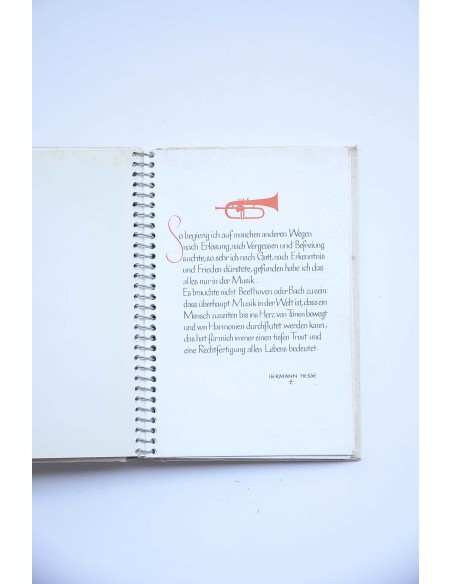 So begierig ich auf manchen anderen Wegen
nach Erlösung, nach Vergessen und Befreiung
suchte, so sehr ich nach Gott, nach Erkenntnis
und Frieden dürstete, gefunden habe ich das
alles nur in der Musik.
Es brauchte nicht Beethoven oder Bach zu sein:
dass überhaupt Musik in der Welt ist, dass ein
Mensch zuzeiten bis ins Herz von Tönen bewegt
und von Harmonien durchflutet werden kann,
das hat für mich immer einen tiefen Trost und
eine Rechtfertigung allen Lebens bedeutet.
HERMANN HESSE